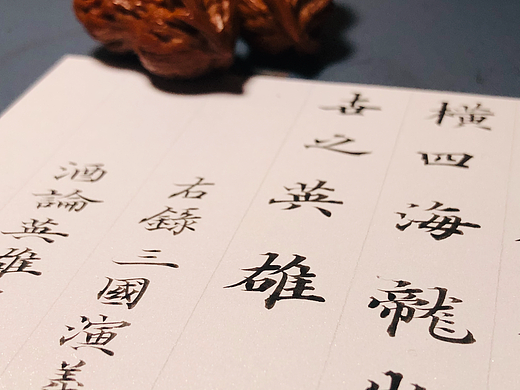 橫四海龍
世之英雄
右錄三國演義
酒論英雄